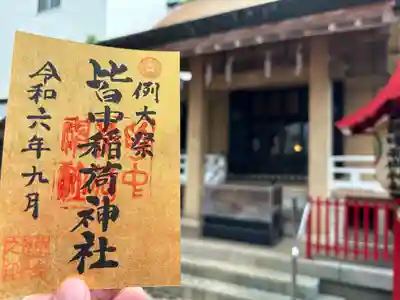 例大祭
皆中稲荷神社
令和六年九月